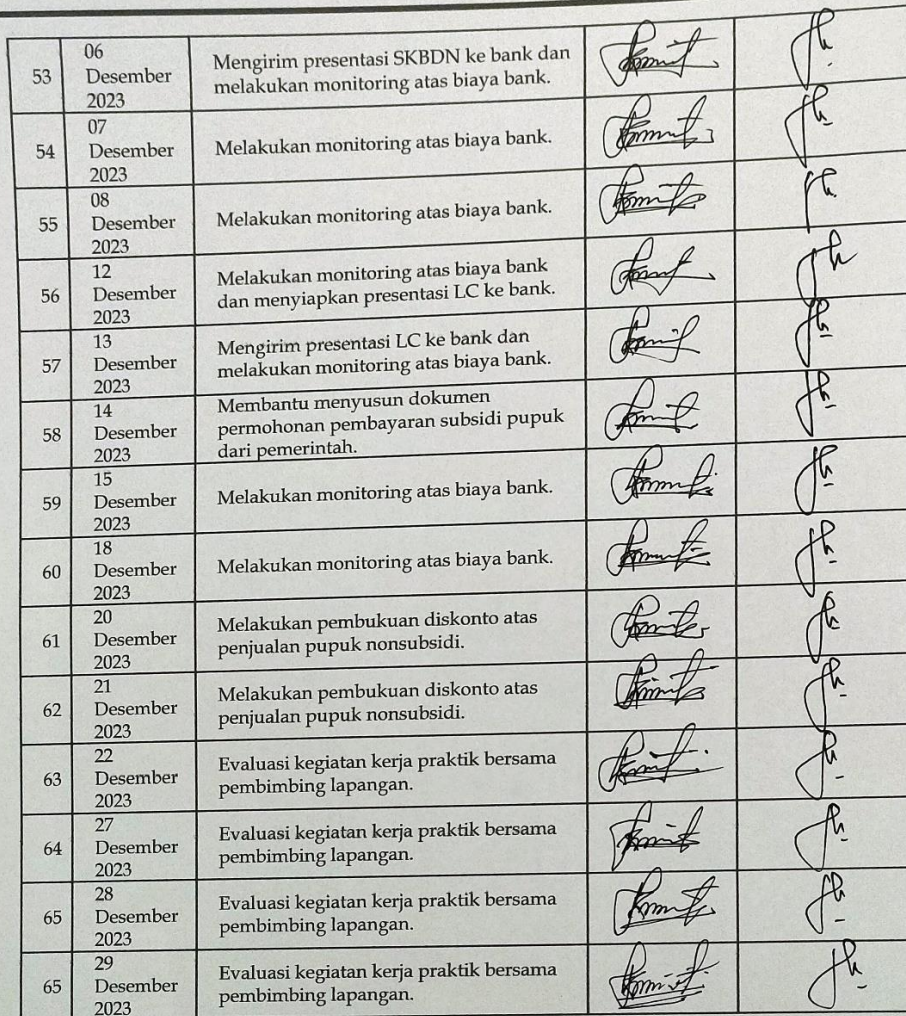 53
06
Desember
2023
Mengirim presentasi SKBDN ke bank dan
melakukan monitoring atas biaya bank.
54
07
Desember
2023
Melakukan monitoring atas biaya bank.
55
08
Desember
2023
Melakukan monitoring atas biaya bank.
56
12
Desember
2023
Melakukan monitoring atas biaya bank
dan menyiapkan presentasi LC ke bank.
57
13
Desember
2023
Mengirim presentasi LC ke bank dan
melakukan monitoring atas biaya bank.
58
14
Desember
2023
Membantu menyusun dokumen
permohonan pembayaran subsidi pupuk
dari pemerintah.
59
15
Desember
2023
Melakukan monitoring atas biaya bank.
60
18
Desember
2023
Melakukan monitoring atas biaya bank.
61
20
Desember
2023
Melakukan pembukuan diskonto atas
penjualan pupuk nonsubsidi.
62
21
Desember
2023
Melakukan pembukuan diskonto atas
penjualan pupuk nonsubsidi.
63
22
Desember
2023
Evaluasi kegiatan kerja praktik bersama
pembimbing lapangan.
64
27
Desember
2023
Evaluasi kegiatan kerja praktik bersama
pembimbing lapangan.
65
28
Desember
2023
Evaluasi kegiatan kerja praktik bersama
pembimbing lapangan.
65
29
Desember
2023
Evaluasi kegiatan kerja praktik bersama
pembimbing lapangan.